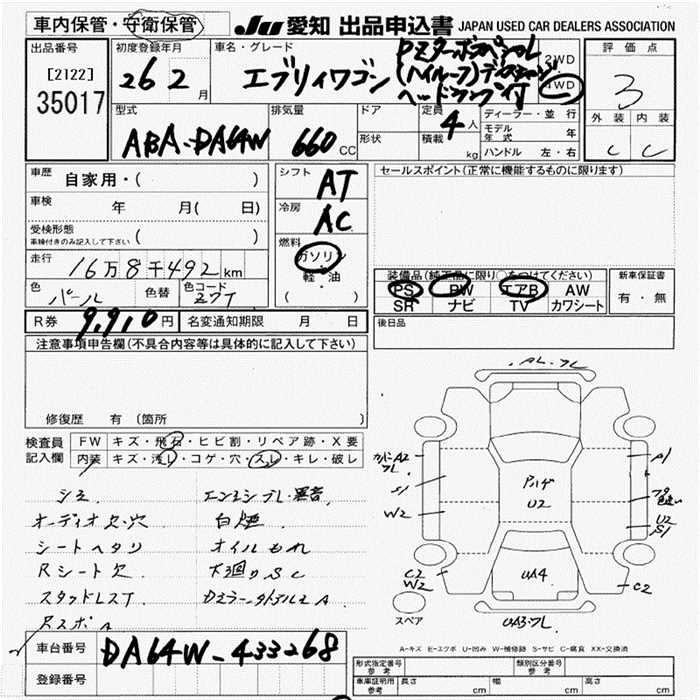 車内保管・守衛保管
JU 愛知 出品申込書 JAPAN USED CAR DEALERS ASSOCIATION
出品番号
[2122]
35017
初度登録年月
26 2月
車名・グレード
エブリィワゴン
PZターボスペシャル
(ハイルーフ)ディスチャージ
ヘッドランプ付
2WD
4WD
評価点
3
外装 内装
C C
型式
ABA-DA64W
排気量
660 CC
ドア
形状
定員
4人
積載 kg
ディーラー・並行
モデル年式 年
ハンドル 左・右
車歴 自家用・( )
車検 年 月(日)
受検形態
車検付きのみ記入して下さい ( )
走行 16万8千492km
色 パール 色替 色コード Z7T
R券 9,910円 名変通知期限 月 日
シフト
AT
冷房
AC
燃料
ガソリン
軽・油
( )
セールスポイント(正常に機能するものに限ります)
装備品(純正品に限り○をつけてください)
PS PW エアB AW
SR ナビ TV カワシート
新車保証書
有・無
後日品
注意事項申告欄(不具合内容等は具体的に記入して下さい)
修復歴 有 (箇所
検査員
記入欄
FW キズ・飛石・ヒビ割・リペア跡・X要
内装 キズ・汚レ・コゲ・穴・スレ・キレ・破レ
シミ
オーディオ欠・穴
シートヘタリ
Rシート欠
スタッドレスT
RスポA
エンジンフレ・異音
白煙
オイルもれ
下廻りSC
AL・フレ
カバーA2
フレ
S1
W2
C2
W2
Pハゲ
U2
UA4
UA3・フレ
A1
フタ
色違い
U2
S1
C2
スペア
A-キズ E-エクボ U-凹み W-補修跡 S-サビ C-腐食 XX-交換済
車台番号 DA64W-433268
登録番号
形式指定番号
参考
類別区分番号
参考
車庫証明用
参考
長さ cm 幅 cm 高さ cm